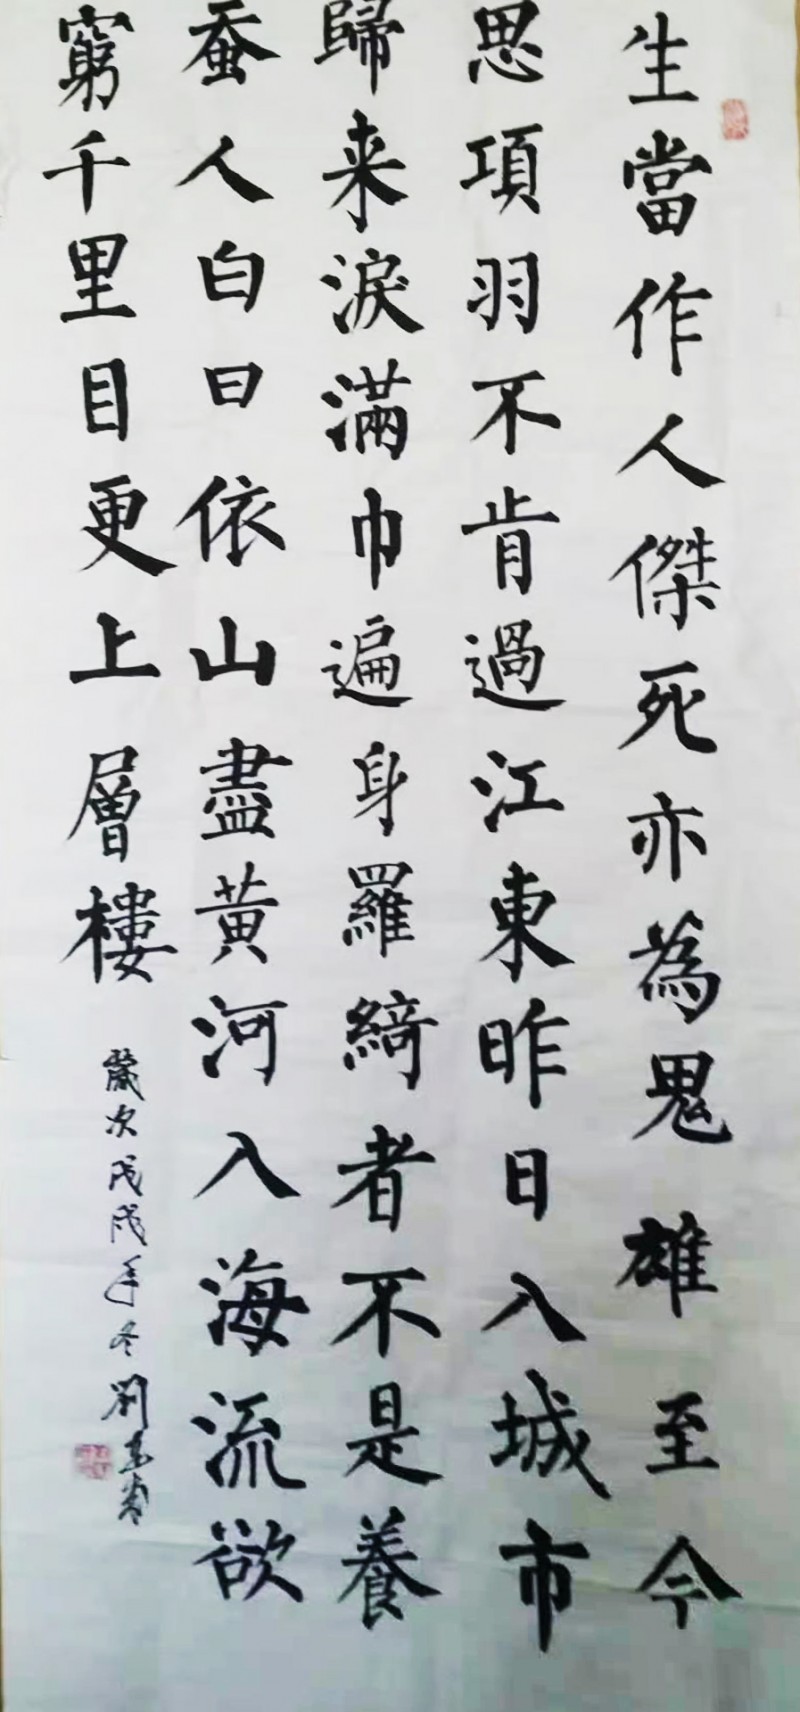 生當作人傑死亦為鬼雄至今
思項羽不肯過江東昨日入城市
歸来淚滿巾遍身羅綺者不是養
蚕人白日依山盡黃河入海流欲
窮千里目更上層樓
歲次戊戌年冬劉